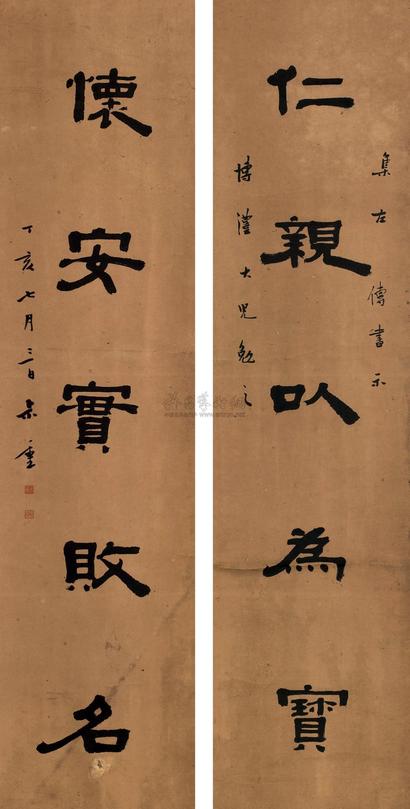 集左傳書示
仁親以為寶
博澧大兒勉之
懷安實敗名
丁亥七月三日